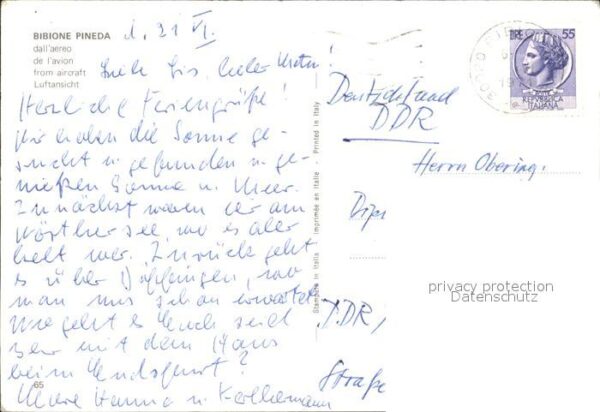 BIBIONE PINEDA
dall'aereo
de l'avion
from aircraft
Luftansicht
d. 21. VI.
lieber
Herzliche Feriengrüße!
Wir haben die Sonne ge-
sucht u. gefunden u. ge-
nießen Sonne u. Meer.
Zunächst waren wir am
Wörthersee, wo es aber
kalt war. Zurück geht
es über
man uns schon erwartet.
Wie geht es Euch seid
Ihr mit dem Haus
beim Endspurt?
Eure Hanna u. Karlhermann
65
Stampato in Italia - Imprimée en Italie - Printed in Italy
LIRE 55
REPVBBLICA
ITALIANA
Deutschland
DDR
Herrn Obering.
Dipl
DDR,
Straße
privacy protection
Datenschutz